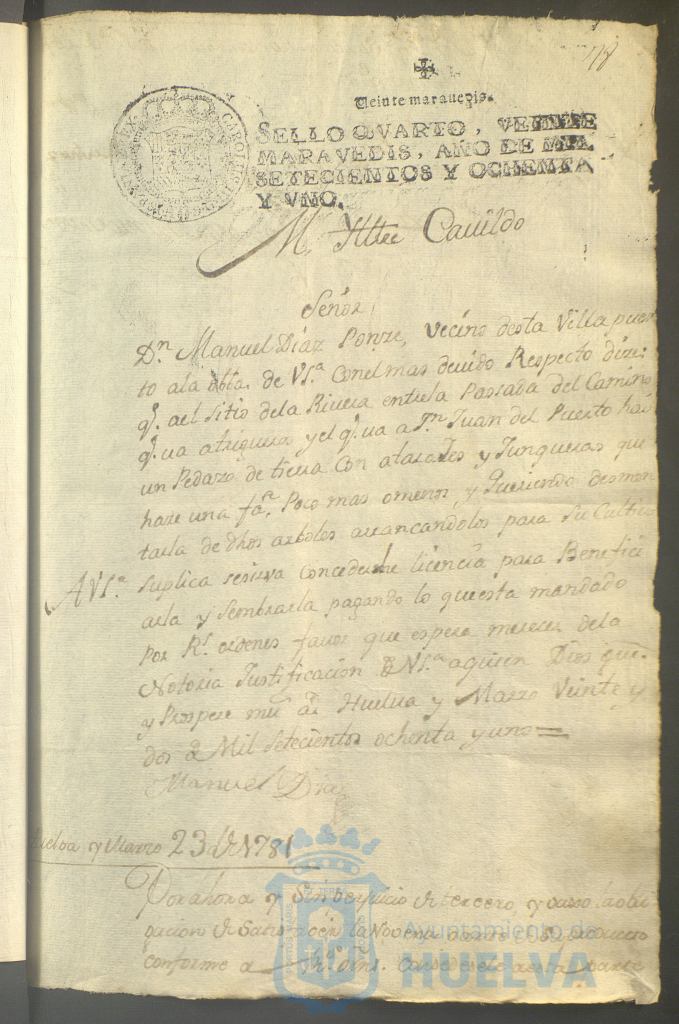 78
Veinte maravedis.
SELLO QVARTO, VEINTE
MARAVEDIS, AÑO DE MIL
SETECIENTOS Y OCHENTA
Y VNO.
M. Yltre Cavildo
Señor,
Dn. Manuel Diaz Ponze, vecino desta Villa puer
to ala obla. de VSa. Conel mas devido Respecto dize:
q. ael sitio dela Rivera entrela Passada del Camino
q. va atriguera yel q. va a Sn. Juan del Puerto hai
un Pedazo de tierra con atarajes y Junqueras que
haze una fa. Poco mas omenos y Queriendo desmon
tarla de dhos arboles arrancandolos para su Cultivo
AVSa. Suplica sesirva concederle licencia para Benefici
arla y Sembrarla pagando lo questa mandado
Por Rs. ordenes favor que espera merecer dela
Notoria Justificacion de VSa. aquien Dios gue.
y Prospere ms. as. Huelva y Marzo Veinte y
dos de Mil Setecientos ochenta y uno=
Manuel Diaz
Huelva y Marzo 23 de 1781
Por ahora y Sin perjuicio de tercero y vajo la obli
gacion de Satisfacer la Novena
conforme a Rs. ordns. Concedesele a esta parte
Ayuntamiento de
HUELVA